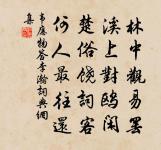 林中觀易罷
溪上對鷗閑
楚俗饒詞客
何人最往還
韋應物答李瀚詞典網
集